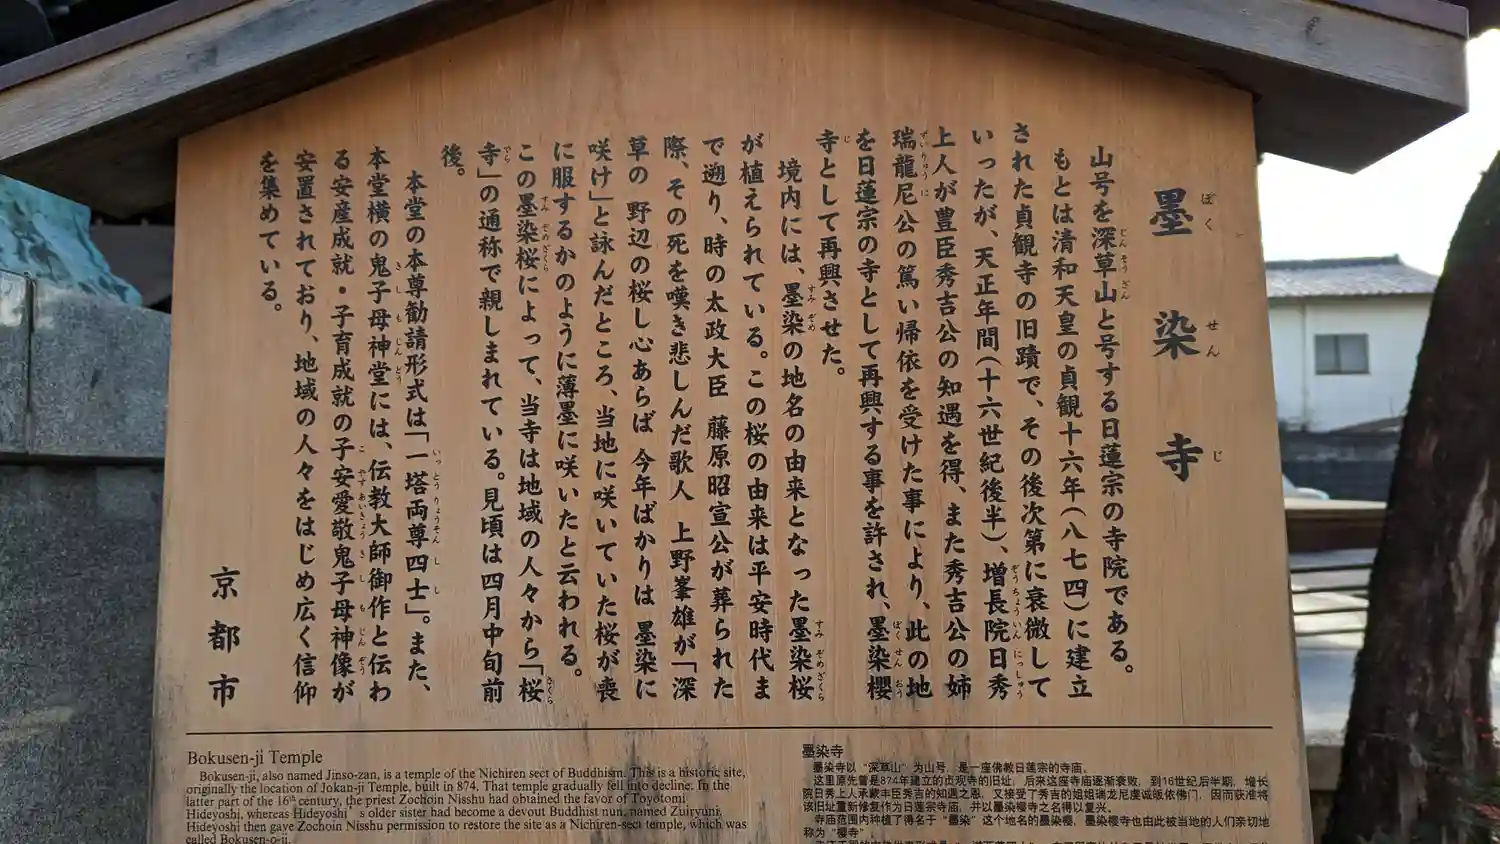 墨染寺
ぼく せん じ
山号を深草山と号する日蓮宗の寺院である。
じんそうざん
もとは清和天皇の貞観十六年(八七四)に建立
された貞観寺の旧蹟で、その後次第に衰微して
いったが、天正年間(十六世紀後半)、増長院日秀
ぞうちょういんにっしゅう
上人が豊臣秀吉公の知遇を得、また秀吉公の姉
瑞龍尼公の篤い帰依を受けた事により、此の地
ずいりゅうに
を日蓮宗の寺として再興する事を許され、墨染櫻
ぼくせんおう
寺として再興させた。
じ
境内には、墨染の地名の由来となった墨染桜
すみぞめ すみぞめざくら
が植えられている。この桜の由来は平安時代ま
で遡り、時の太政大臣 藤原昭宣公が葬られた
際、その死を嘆き悲しんだ歌人 上野峯雄が「深
草の 野辺の桜し心あらば 今年ばかりは 墨染に
咲け」と詠んだところ、当地に咲いていた桜が喪
に服するかのように薄墨に咲いたと云われる。
この墨染桜によって、当寺は地域の人々から「桜
すみぞめざくら さくら
寺」の通称で親しまれている。見頃は四月中旬前
でら
後。
本堂の本尊勧請形式は「一塔両尊四士」。また、
いっとうりょうそんしし
本堂横の鬼子母神堂には、伝教大師御作と伝わ
きしもじんどう
る安産成就・子育成就の子安愛敬鬼子母神像が
こやすあいきょうきしもじんぞう
安置されており、地域の人々をはじめ広く信仰
を集めている。
京都市
Bokusen-ji Temple
Bokusen-ji, also named Jinso-zan, is a temple of the Nichiren sect of Buddhism. This is a historic site,
originally the location of Jokan-ji Temple, built in 874. That temple gradually fell into decline. In the
latter part of the 16th century, the priest Zochoin Nisshu had obtained the favor of Toyotomi
Hideyoshi, whereas Hideyoshi's older sister had become a devout Buddhist nun, named Zuiryuni.
Hideyoshi then gave Zochoin Nisshu permission to restore the site as a Nichiren-sect temple, which was
called Bokusen-o-ji.
墨染寺
墨染寺以“深草山”为山号，是一座佛教日莲宗的寺庙。
这里原先曾是874年建立的贞观寺的旧址，后来这座寺庙逐渐衰败，到16世纪后半期，增长
院日秀上人承蒙丰臣秀吉的知遇之恩，又接受了秀吉的姐姐瑞龙尼虔诚皈依佛门，因而获准将
该旧址重新修复作为日莲宗寺庙，并以墨染樱寺之名得以复兴。
寺庙范围内种植了得名于“墨染”这个地名的墨染樱，墨染樱寺也由此被当地的人们亲切地
称为“樱寺”。